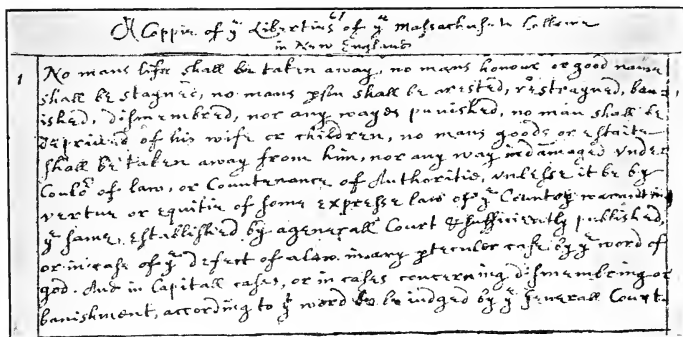 A Coppie of yᵉ Liberties of yᵉ Massachusets Collonie
in New England
1 No mans life shall be taken away, no mans honour or good name
shall be stayned, no mans pson shall be arested, restrayned, ban-
ished, dismembred, nor any wayes punished, no man shall be
deprived of his wife or children, no mans goods or estaite
shall be taken away from him, nor any way indamaged vnder
Coulor of law, or Countenance of Authoritie, vnlesse it be by
vertue or equitie of some expresse law of yᵉ Country warranting
yᵉ same, established by a generall Court & sufficiently published,
or in case of yᵉ defect of a law in any pteculer case by yᵉ word of
god. And in Capitall cases, or in cases concerning dismembring or
banishment, according to yᵉ word to be iudged by yᵉ Generall Court.